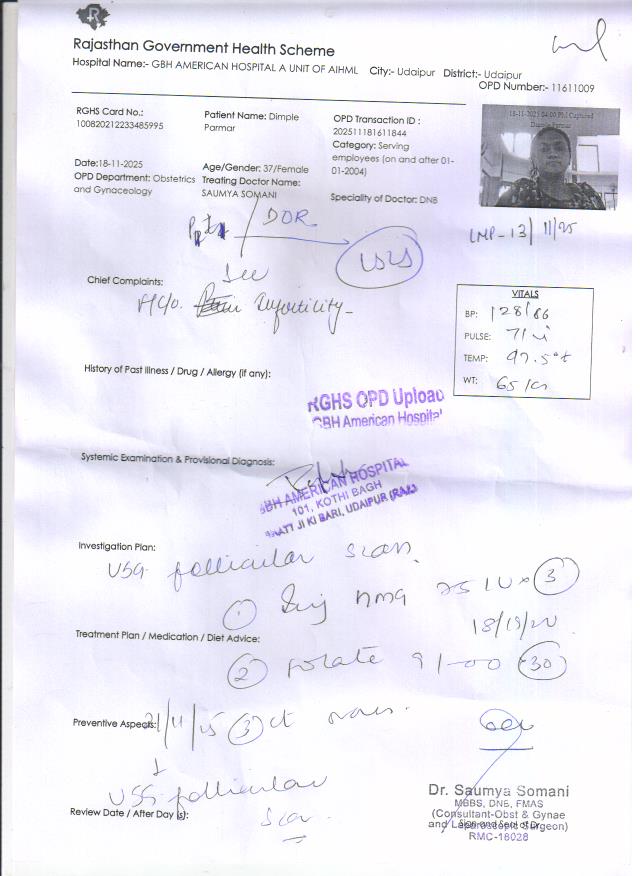 RGHS
Rajasthan Government Health Scheme
Hospital Name:- GBH AMERICAN HOSPITAL A UNIT OF AIHML City:- Udaipur District:- Udaipur
OPD Number:- 11611009
RGHS Card No.: 100820212233485995
Patient Name: Dimple Parmar
OPD Transaction ID : 202511181611844
Category: Serving employees (on and after 01-01-2004)
18-11-2025 04:00 PM Captured
Dimple Parmar
Date:18-11-2025
OPD Department: Obstetrics and Gynaceology
Age/Gender: 37/Female
Treating Doctor Name: SAUMYA SOMANI
Speciality of Doctor: DNB
DOR
LMP - 13/11/25
Chief Complaints:
H/O. Infertility
VITALS
BP: 128/66
PULSE: 71
TEMP: 97.5°f
WT: 65
History of Past Illness / Drug / Allergy (if any):
RGHS OPD Upload
GBH American Hospital
Systemic Examination & Provisional Diagnosis:
GBH AMERICAN HOSPITAL
101, KOTHI BAGH
BHATT JI KI BARI, UDAIPUR (RAJ.)
Investigation Plan:
USG follicular scan
① Inj HMG 75 IU x ③
18/19/20
Treatment Plan / Medication / Diet Advice:
② Folate
30
Preventive Aspects:
21/11/25 ③ ct
USG follicular
scan
Review Date / After Day (s):
Dr. Saumya Somani
MBBS, DNB, FMAS
(Consultant-Obst & Gynae
and Laparoscopic Surgeon)
Sign and Seal of Dr.
RMC-18028